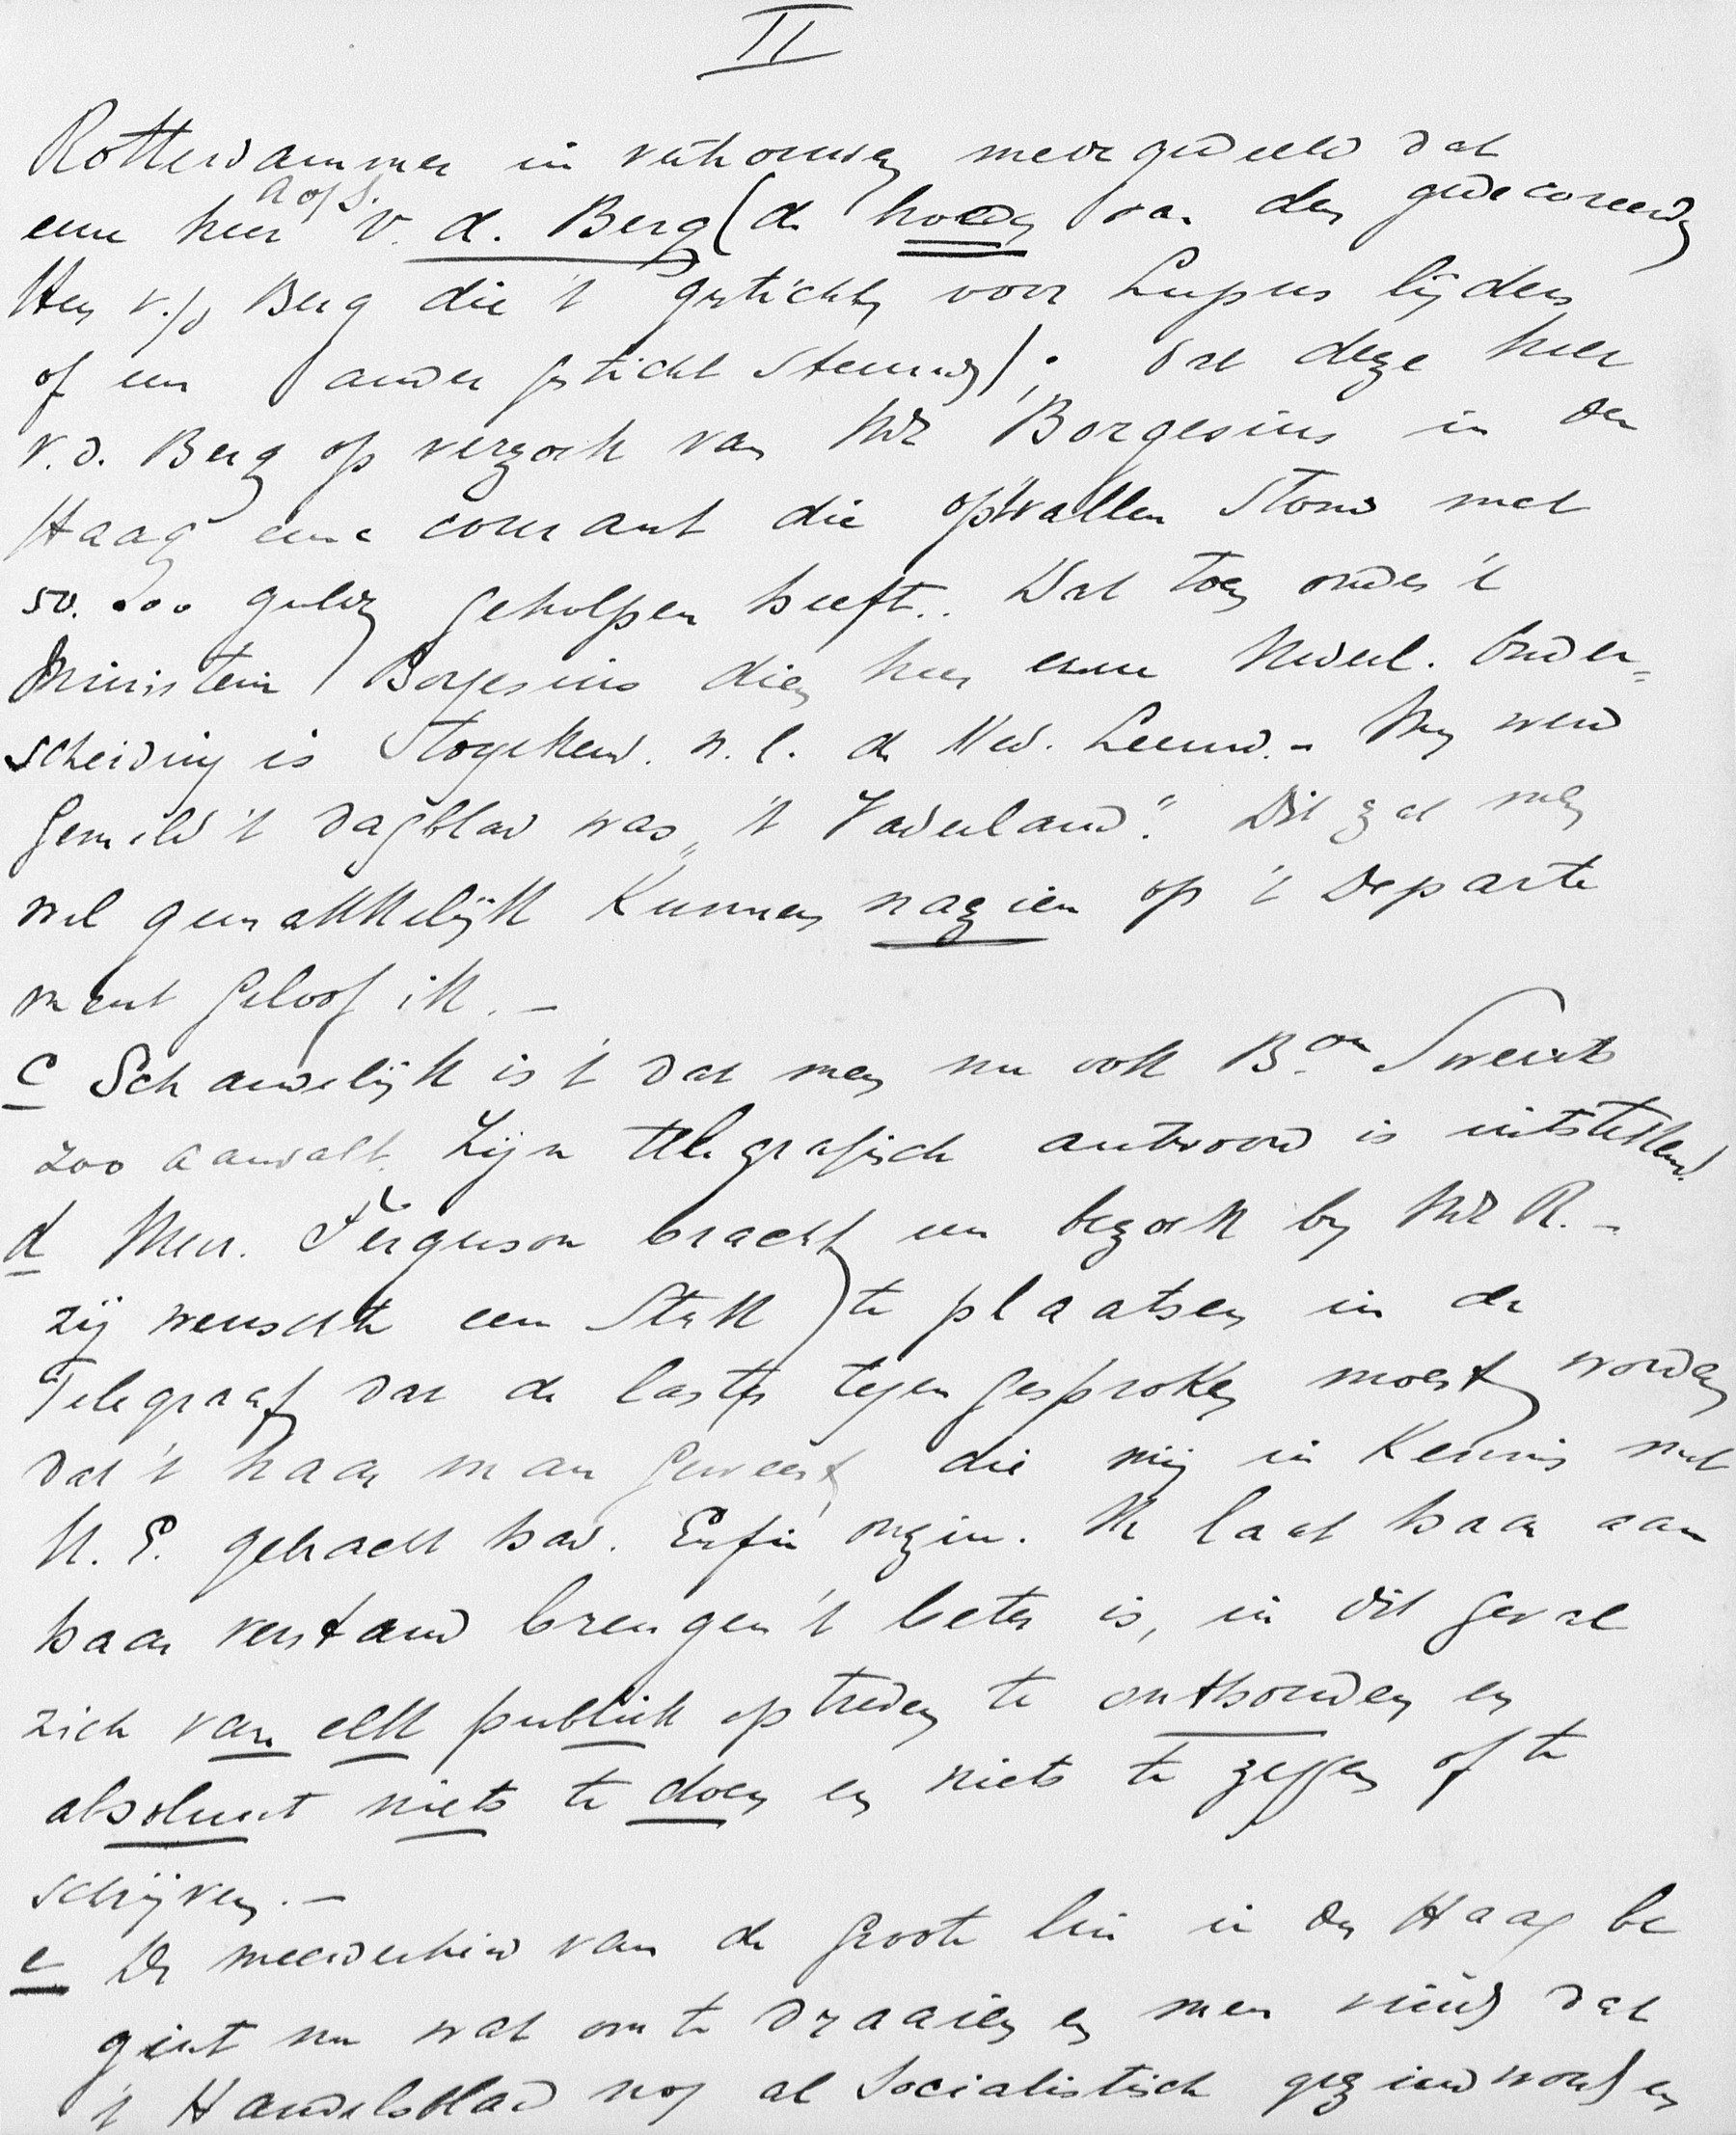 II
Rotterdammer in vertrouwen medegedeeld dat
eene heer A of S. v. d. Berg (de broer van den gedecoreerden
Heer v.d. Berg die 't gesticht voor Lupus lijders
of een ander gesticht steunde); dat deze heer
v.d. Berg op verzoek van Mr Borgesius in den
Haag eene courant die op 't vallen stond met
50.000 gulden geholpen heeft.. Dat toen onder 't
Ministerie Borgesius dien heer eene Nederl. Onder-
scheiding is toegekend. n.l. de Ned. Leeuw. - Mij werd
gemeld 't dagblad was "'t Vaderland". Dit zal men
wel gemakkelijk kunnen nagzien op 't Departe
ment geloof ik. -
c Schandelijk is 't dat men nu ook Bon Sweerts
zoo aanvalt. Zijn telegrafisch antwoord is uitstekend.
d Mevr. Ferguson bracht een bezoek by Mr R. -
zij wenschte een stuk te plaatsen in de
Telegraaf dat de laster tegengesproken moest worden
dat 't haar man geweest die mij in kennis met
K. E. gebracht had. Enfin onzin. Ik laat haar aan
haar verstand brengen 't beter is, in dit geval
zich van elk publiek optreden te onthouden en
absoluut niets te doen en niets te zeggen of te
schrijven. -
e De meerderheid van de groote lui in den Haag be
gint nu wat om te draaien en men vindt dat
't Handelsblad nog al Socialistisch gezind wordt en